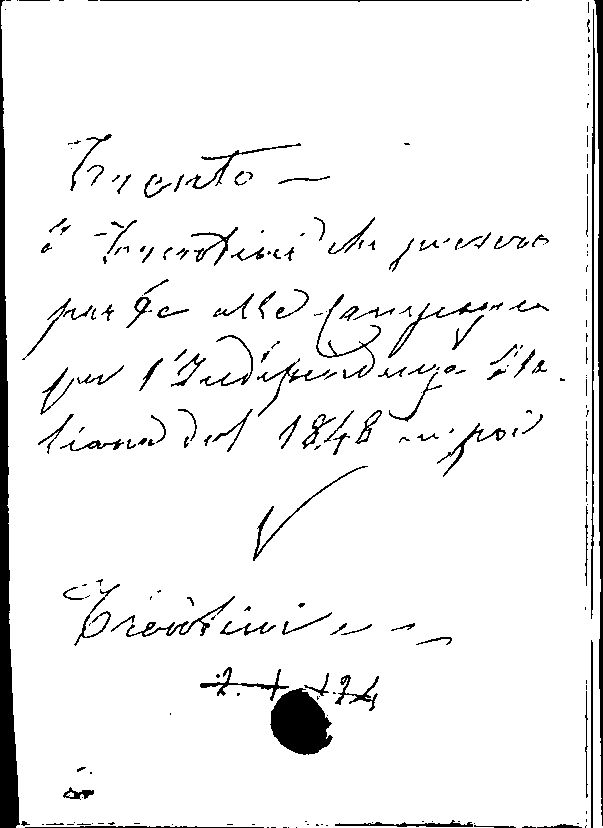 Trento —
i Trentini che presero
parte alle Campagne
per l'Indipendenza Ita-
liana dal 1848 in poi
V
Trentini